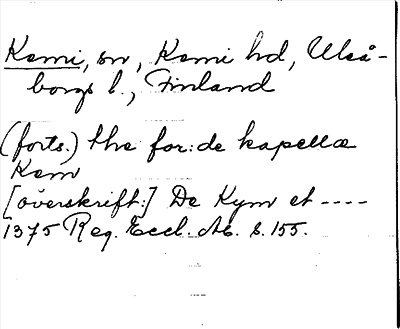 Kemi, sn, Kemi hd, Uleå-
borgs l., Finland
(forts.) the for: de kapellæ
Kem
[överskrift:] De Kym et ----
1375 Reg. Eccl. Ab. s. 155.